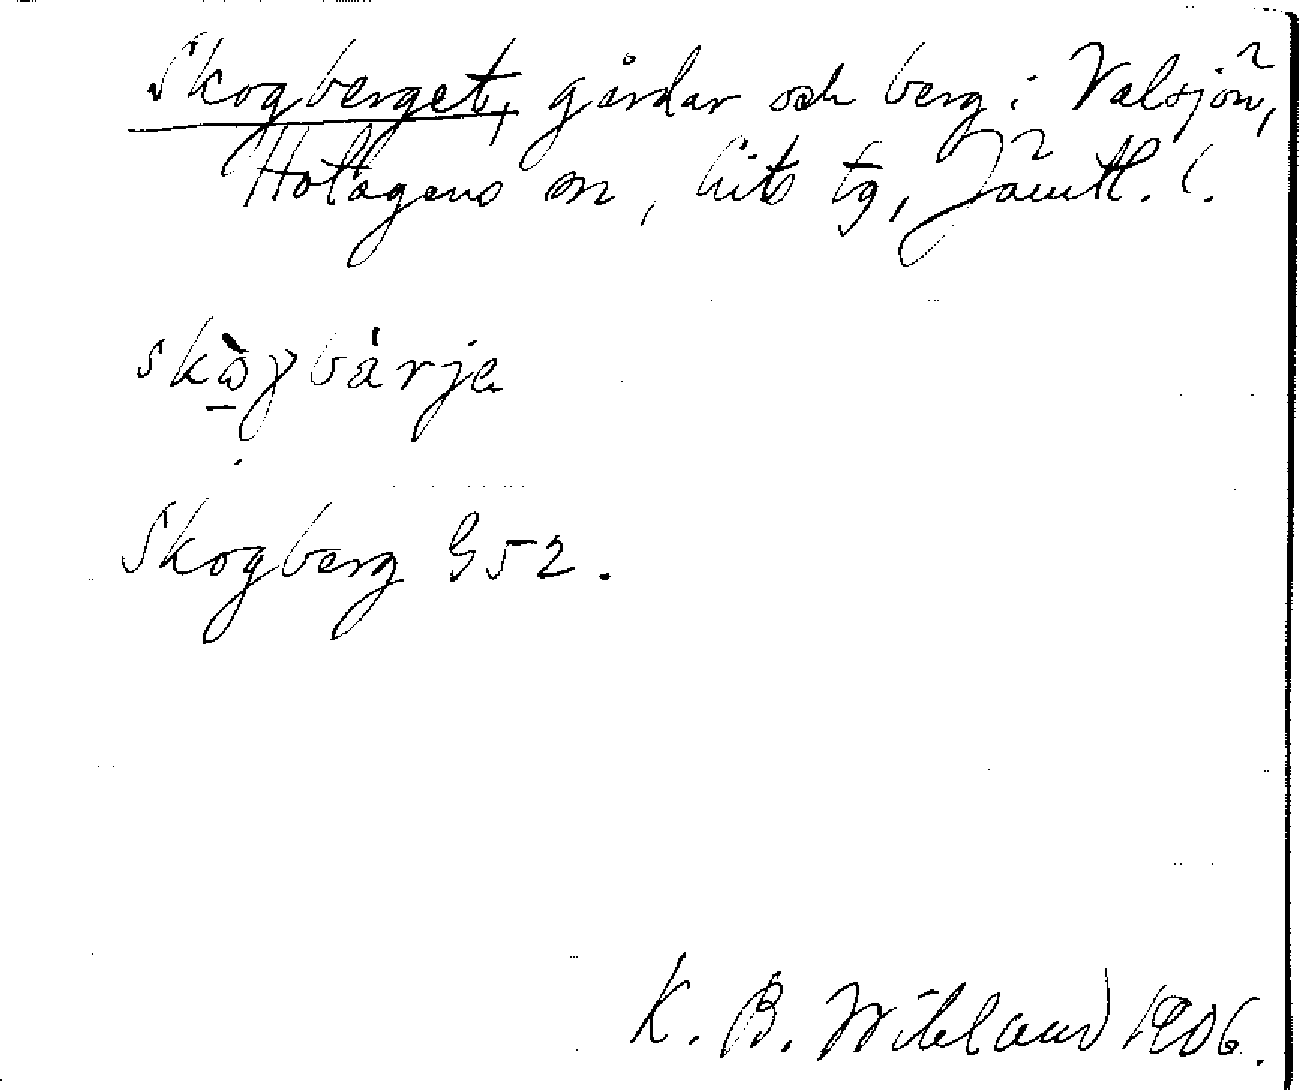 Skogberget, gårdar och berg i Valsjön,
Hotagens sn, Lits tg, Jämtl. l.
skòɣbárje
Skogberg G52.
K. B. Wiklund 1906.